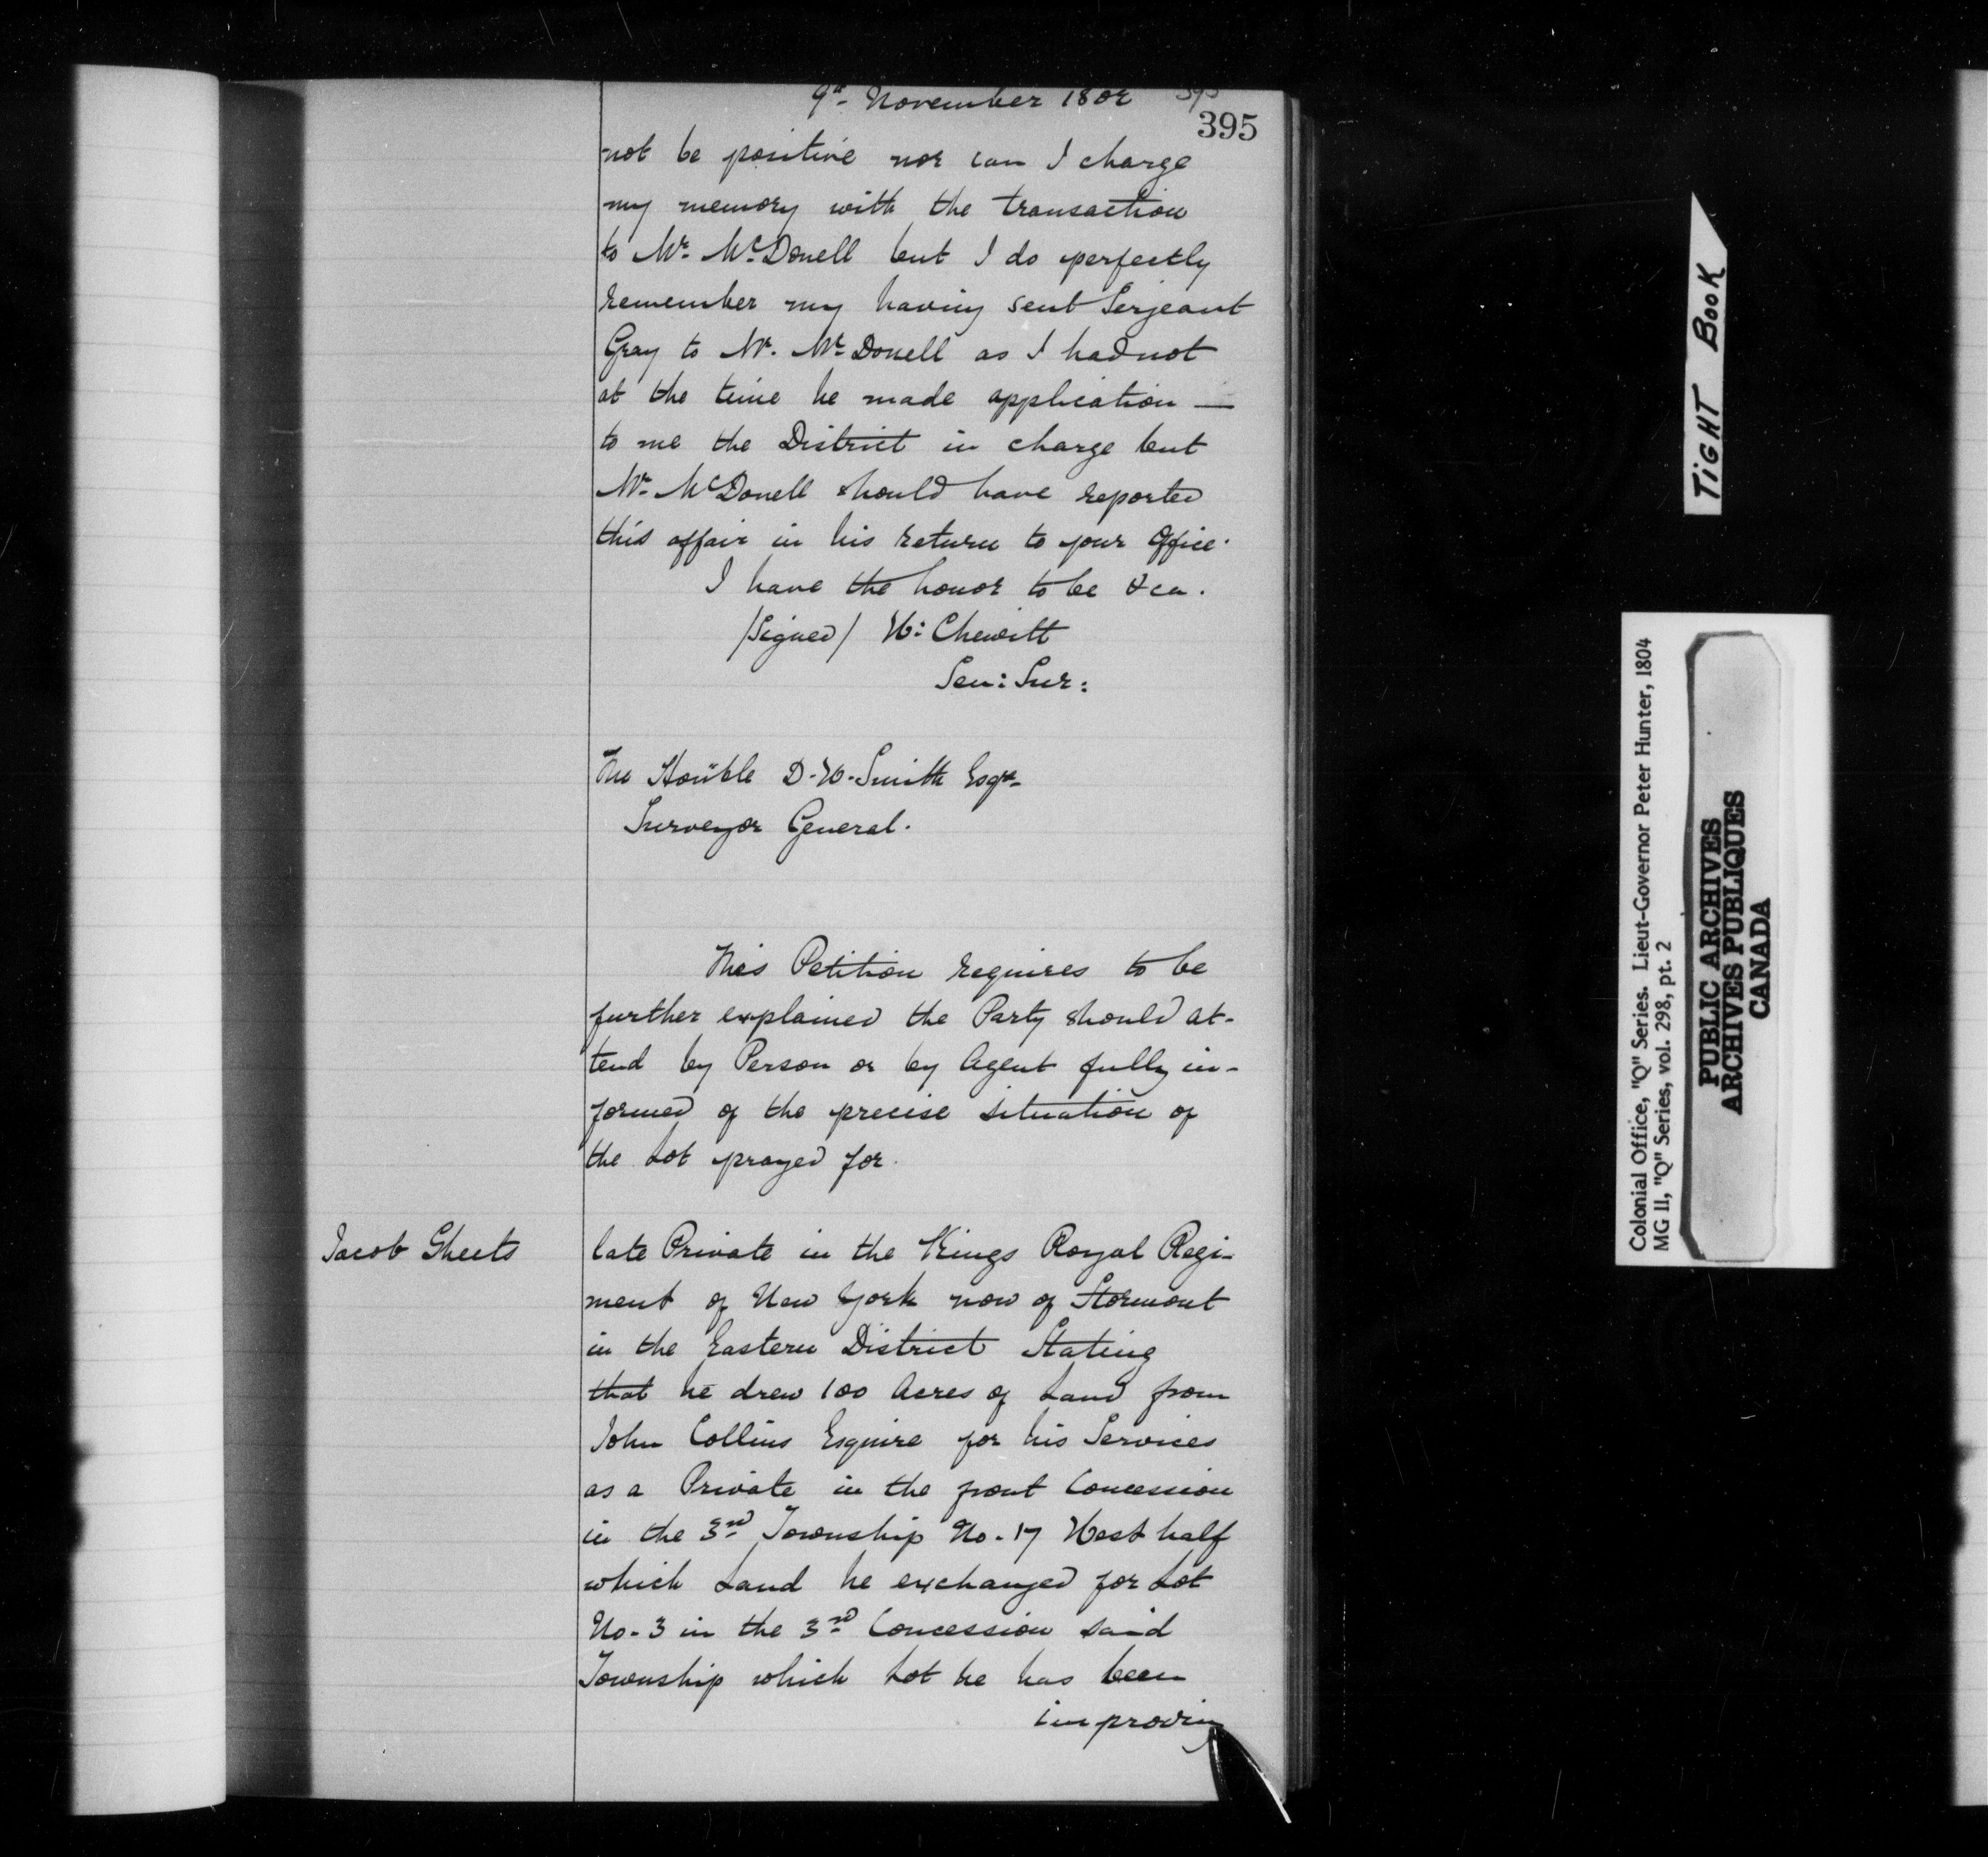 9th November 1802
395
395
not be positive nor can I charge
my memory with the transaction
to Mr. McDonell but I do perfectly
remember my having sent Serjeant
Gray to Mr. McDonell as I had not
at the time he made application —
to me the District in charge but
Mr. McDonell should have reported
this affair in his return to your Office.
I have the honor to be &ca.
/Signed/ W: Chewitt
Sen: Sur:
The Honble D. W. Smith Esqr.
Surveyor General.
This Petition requires to be
further explained the Party should at-
tend by Person or by Agent fully in-
formed of the precise situation of
the Lot prayed for.
Jacob Sheets
late Private in the Kings Royal Regi-
ment of New York now of Stormont
in the Eastern District Stating
that he drew 100 Acres of Land from
John Collins Esquire for his Services
as a Private in the front Concession
in the 3rd Township No. 17 West half
which Land he exchanged for Lot
No. 3 in the 3rd Concession said
Township which Lot he has been
improving
TIGHT BOOK
Colonial Office, "Q" Series. Lieut-Governor Peter Hunter, 1804
MG 11, "Q" Series, vol. 298, pt. 2
PUBLIC ARCHIVES
ARCHIVES PUBLIQUES
CANADA